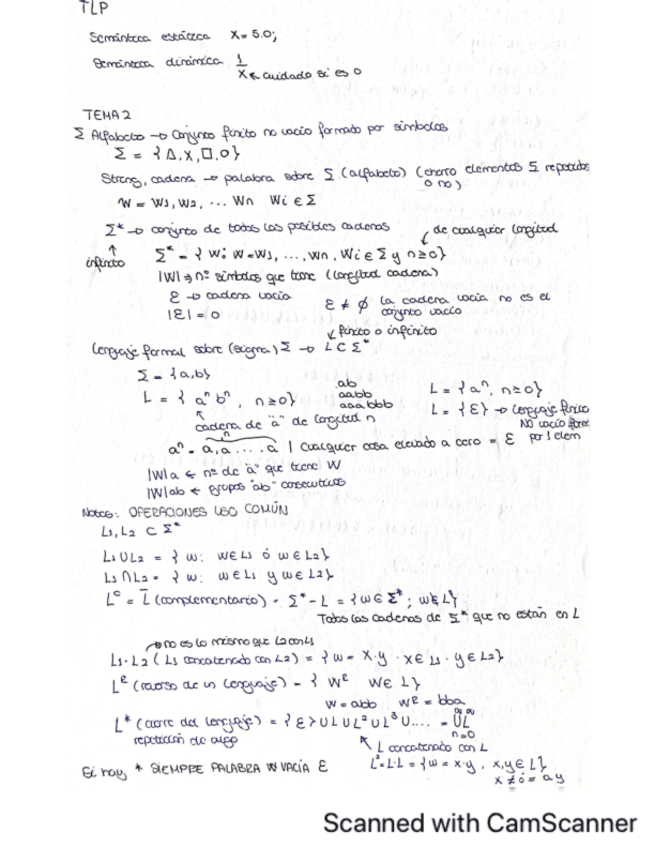 TLP
Semántica estática X = 5.0;
Semántica dinámica 1/X ← cuidado si es 0
TEMA 2
Σ Alfabeto → Conjunto finito no vacío formado por símbolos
Σ = {Δ, X, □, O}
String, cadena → palabra sobre Σ (alfabeto) (chorro elementos Σ repetidos o no)
W = W1, W2, ... Wn Wi ∈ Σ
Σ* → conjunto de todas las posibles cadenas
de cualquier longitud
infinito Σ* = {W: W = W1, ..., Wn, Wi ∈ Σ y n≥0}
|W| → nº símbolos que tiene (longitud cadena)
ε → cadena vacía ε ≠ ∅ la cadena vacía no es el conjunto vacío
|ε| = 0
finito o infinito
Lenguaje formal sobre (sigma) Σ → L ⊂ Σ*
Σ = {a,b}
L = {aⁿ bⁿ, n≥0} ab aabb aaabbb L = {aⁿ, n≥0}
L = {ε} → lenguaje finito NO vacío tiene 1 elem
cadena de "a" de longitud n
aⁿ = a, a ... , a | Cualquier cosa elevado a cero = ε
|W|a ← nº de "a" que tiene W
|W|ab ← grupos "ab" consecutivos
Notas: OPERACIONES USO COMÚN
L1, L2 ⊂ Σ*
L1 ∪ L2 = {w: w ∈ L1 ó w ∈ L2}
L1 ∩ L2 = {w: w ∈ L1 y w ∈ L2}
Lᶜ = L̄ (complementario) = Σ* - L = {w ∈ Σ*; w ∉ L}
Todas las cadenas de Σ* que no están en L
no es lo mismo que L2 con L1
L1 · L2 (L1 concatenado con L2) = {w = x·y · x ∈ L1 · y ∈ L2}
Lᴿ (reverso de un lenguaje) = {Wᴿ W ∈ L}
W = abb Wᴿ = bba
L* (cierre del lenguaje) = {ε} ∪ L ∪ L² ∪ L³ ∪ .... = ∞∪L n=0
repetición de algo
L concatenado con L
Si hay * SIEMPRE PALABRA W VACÍA ε L² = L·L = {w = x·y, x,y ∈ L}
x ≠ ó = a y
Scanned with CamScanner